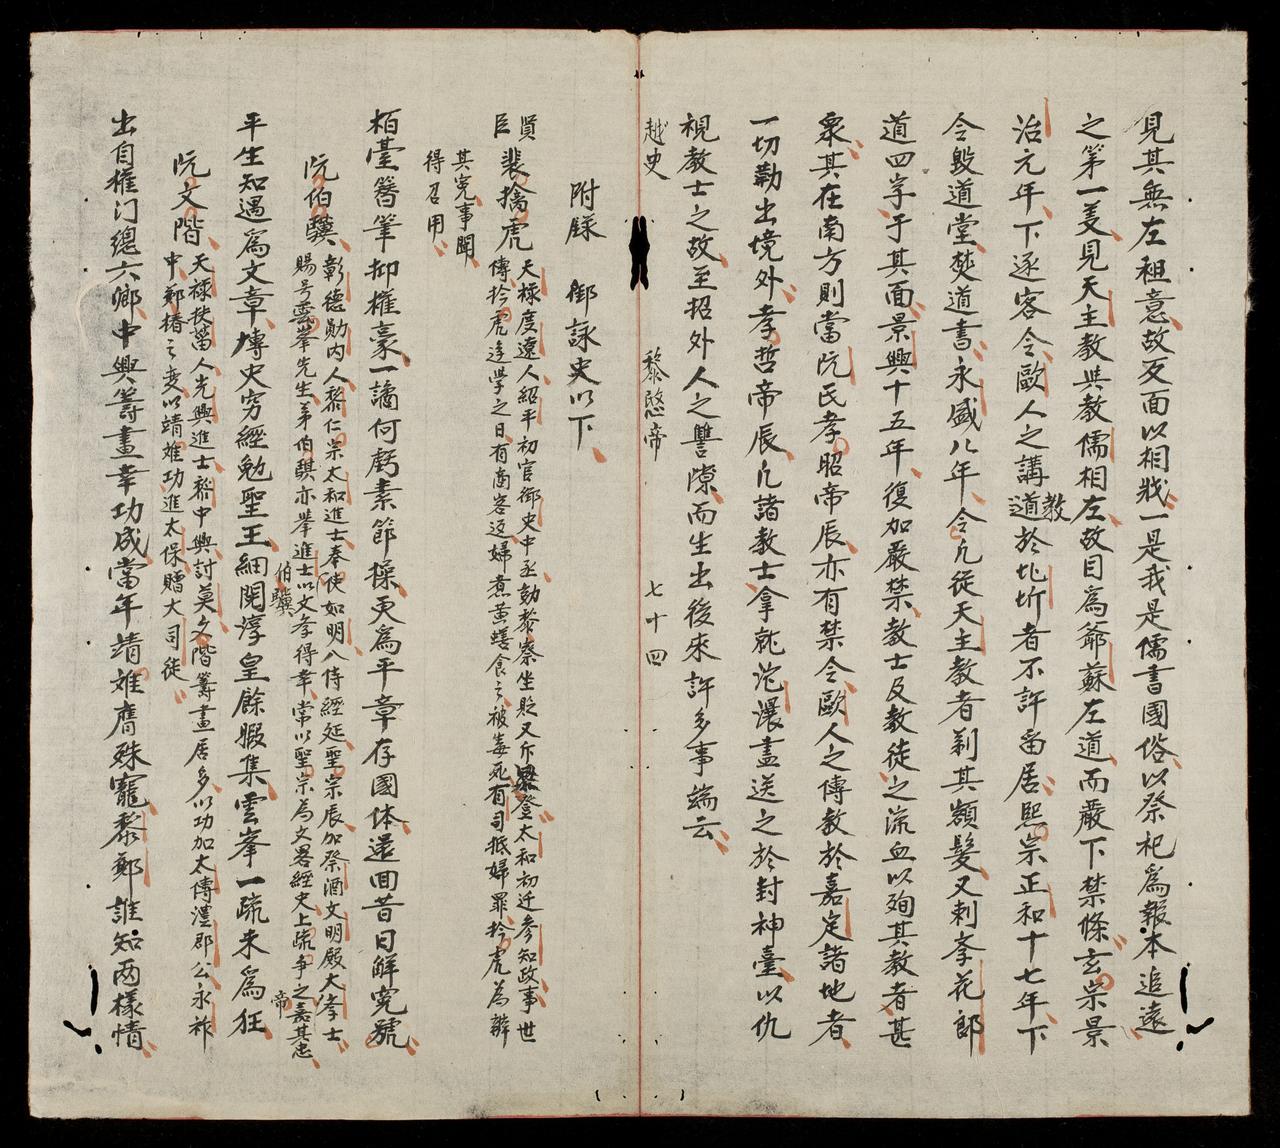 見其無左祖意故反面以相戕一是我是儒書國俗以祭祀為報本追遠
之第一美見天主教與教儒相左故目為爺蘇左道而嚴下禁條玄宗景
治元年下逐客令歐人之講道教於北圻者不許畱居熙宗正和十七年下
令毀道堂焚道書永盛八年令凡從天主教者剃其額髮又刺李花郎
道四字于其面景興十五年復加嚴禁教士及教徒之流血以殉其教者甚
衆其在南方則當阮民孝昭帝辰亦有禁令歐人之傳教於嘉定諸地者
一切勒出境外孝哲帝辰凡諸教士拿就沱灢盡送之於封神臺以仇
視教士之故至招外人之讐隙而生出後來許多事端云
越史 黎愍帝 七十四
附錄 御詠史以下
賢臣 裴擒虎 天祿度遼人紹平初官御史中丞劾黎察坐貶又斥梁登太和初迁參知政事世
傳扲虎逹學之日有商客返婦煮黄蟮食之被毒死有司抵婦罪扲虎為辨
其寃事聞
得召用
栢臺簪筆抑權豪一謫何虧素節操更為平章存國体還回昔日解寃號
阮伯驥 彰德勛内人黎仁宗太和進士奉使如明八侍經筵聖宗辰加祭酒文明殿大學士
賜号雲峯先生弟伯騏亦舉進士以文學得幸常以聖宗為文畧經史上疏爭之嘉其忠
伯驥
帝
平生知遇為文章博史穷經勉聖王細閱淳皇餘暇集雲峯一疏未為狂
阮文階 天祿扶苗人光興進士黎中興討莫文階籌畫居多以功加太傅澧郡公永祚
中鄭椿之変以靖难功進太保贈大司徒
出自權门總六卿中興籌畫幸功成當年靖难膺殊寵黎鄭誰知两樣情